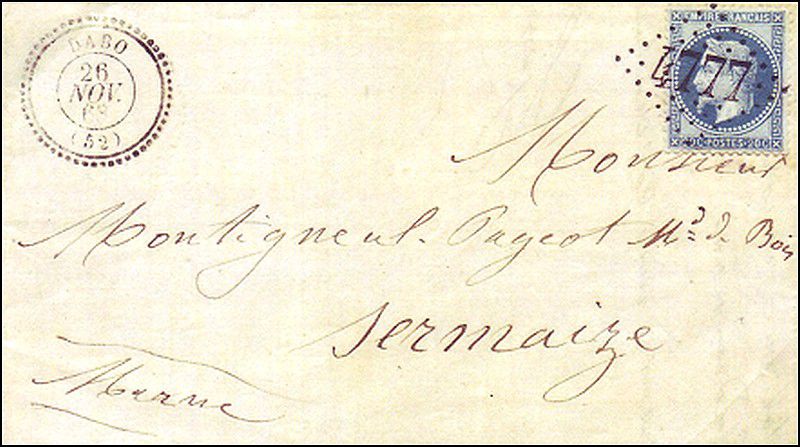 DABO
26
NOV.
68
(52)
EMPIRE FRANÇAIS
4777
20C POSTES 20C
Monsieur
Montigneul-Pageot Md de Bois
Sermaize
Marne